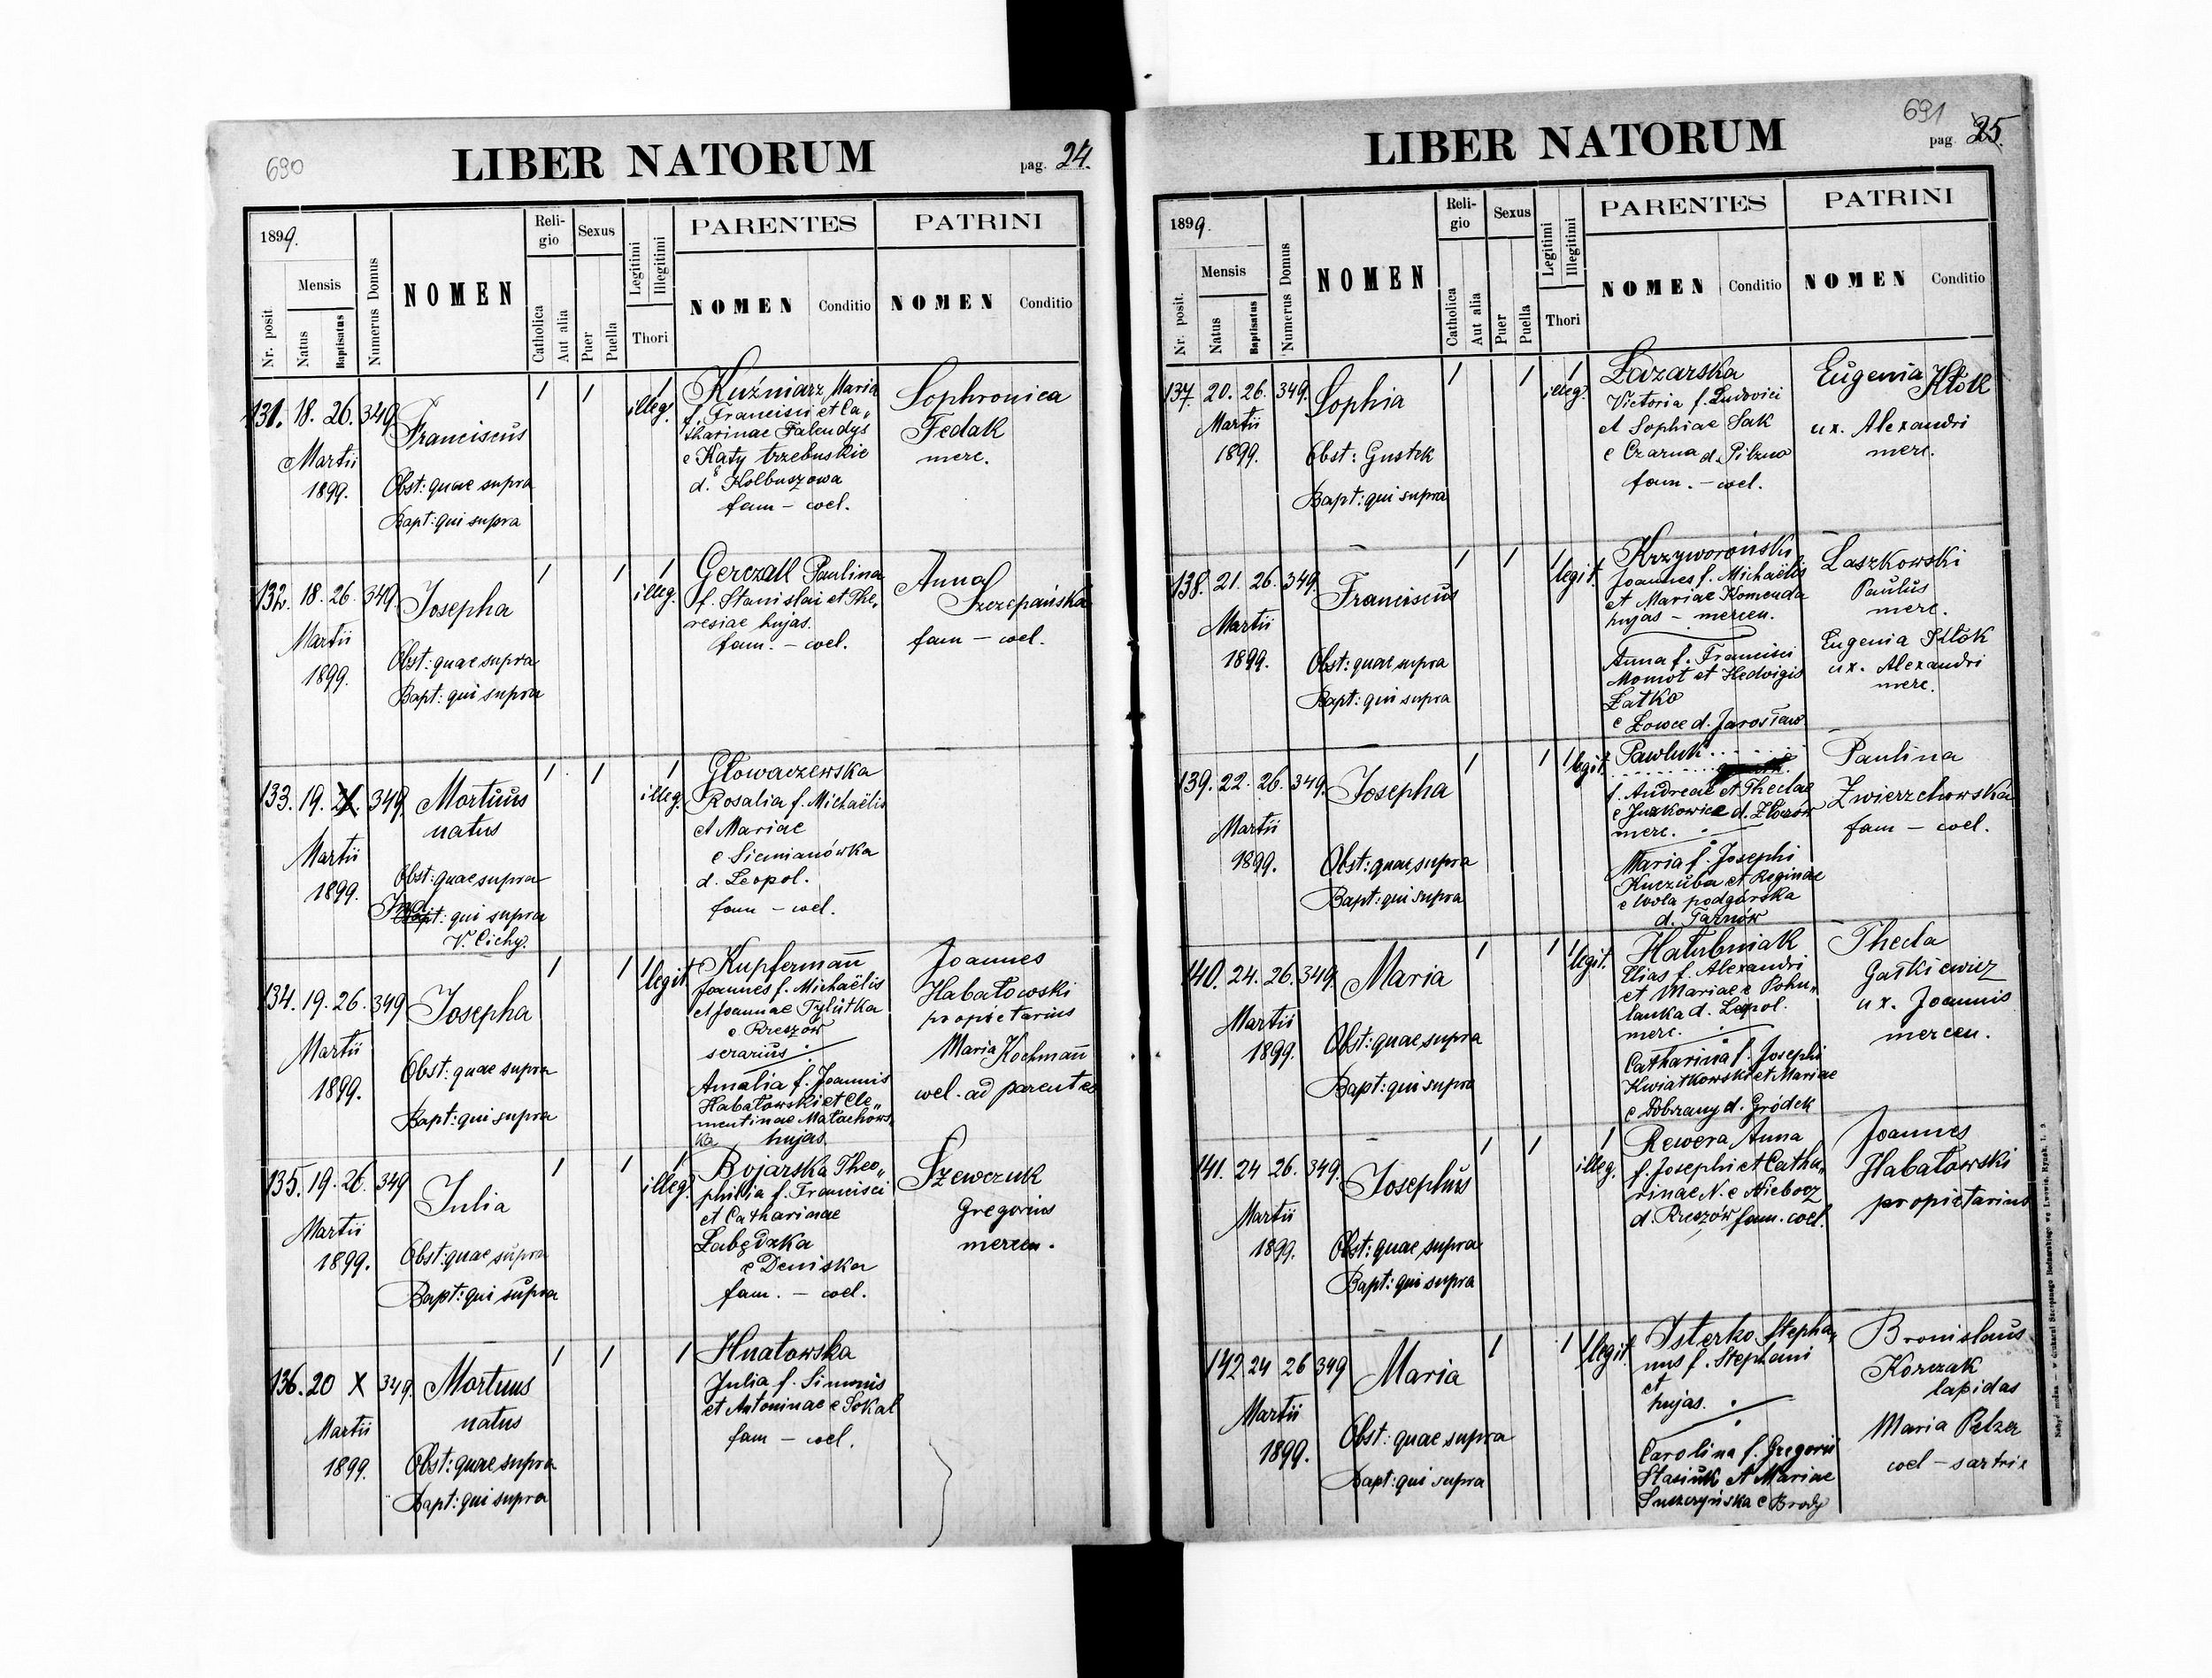 690
LIBER NATORUM
pag. 24.
1899.
Nr. posit.
Mensis
Natus
Baptisatus
Numerus Domus
NOMEN
Reli-
gio
Catholica
Aut alia
Sexus
Puer
Puella
Legitimi
Illegitimi
Thori
PARENTES
NOMEN
Conditio
PATRINI
NOMEN
Conditio
131. 18. 26. 349
Martii
1899.
Franciscus
Obst: quae supra
Bapt: qui supra
illeg.
Kuźniarz Maria
f. Francisci et Ca„
tharinae Falendys
e Kąty trzebuskie
d. Kolbuszowa
fam – coel.
Sophronica
Fedak
merc.
132. 18. 26. 349
Martii
1899.
Josepha
Obst: quae supra
Bapt: qui supra
illeg.
Gerczall Paulina
f. Stanislai et The„
resiae hujas.
fam. – coel.
Anna
Szczepańska
fam – coel.
133. 19. 349.
Martii
1899.
Mortuus
natus
Obst: quae supra
Ind: qui supra
V. Cichy.
illeg.
Głowaczewska
Rosalia f. Michaëlis
et Mariae
e Siemianówka
d. Leopol.
fam – coel.
134. 19. 26. 349
Martii
1899.
Josepha
Obst: quae supra
Bapt: qui supra
legit.
Kupfermann
Joannes f. Michaëlis
et Joannae Tylutka
e Rzeszów
serarius
Amalia f. Joannis
Habatowski et Cle„
mentinae Małachows„
ka hujas.
Joannes
Habatowski
propietarius
Maria Kochmann
coel. ad parentes
135. 19. 26. 349
Martii
1899.
Julia
Obst: quae supra
Bapt: qui supra
illeg.
Bojarska Theo„
philia f. Francisci
et Catharinae
Łabędzka
e Deniska
fam. – coel.
Szewczuk
Gregorius
mercen.
136. 20 X 349.
Martii
1899.
Mortuus
natus
Obst: quae supra
Bapt: qui supra
Hnatowska
Julia f. Simonis
et Antoninae e Sokal
fam – coel.
691
LIBER NATORUM
pag. 25.
1899.
Nr. posit.
Mensis
Natus
Baptisatus
Numerus Domus
NOMEN
Reli-
gio
Catholica
Aut alia
Sexus
Puer
Puella
Legitimi
Illegitimi
Thori
PARENTES
NOMEN
Conditio
PATRINI
NOMEN
Conditio
137. 20. 26. 349.
Martii
1899.
Sophia
Obst: Gustek
Bapt: qui supra
illeg.
Lazarska
Victoria f. Ludovici
et Sophiae Sak
e Czarna d. Pilzno
fam. – coel.
Eugenia
ux. Alexandri
merc.
138. 21. 26. 349.
Martii
1899.
Franciscus
Obst: quae supra
Bapt: qui supra
legit.
Krzyworoński
Joannes f. Michaëlis
et Mariae Komenda
hujas – mercen.
Anna f. Francisci
Momot et Hedvigis
Łatko
e Łowce d. Jarosław
Laszkowski
Paulus
merc.
Eugenia
ux. Alexandri
merc.
139. 22. 26. 349.
Martii
1899.
Josepha
Obst: quae supra
Bapt: qui supra
legit.
Pawluk
f. Andreae et Theclae
d. Złoczów
merc.
Maria f. Josephi
Kuczuba et Reginae
e Wola podgórska
d. Tarnów
Paulina
Zwierzchowska
fam – coel.
140. 24. 26. 349.
Martii
1899.
Maria
Obst: quae supra
Bapt: qui supra
legit.
Hałubniak
Elias f. Alexandri
et Mariae e Pohu„
lanka d. Leopol.
merc.
Catharina f. Josephi
Kwiatkowski et Mariae
e Dobrzany d. Gródek
Thecla
Gaśkiewicz
ux. Joannis
mercen.
141. 24 26. 349.
Martii
1899.
Josephus
Obst: quae supra
Bapt: qui supra
illeg.
Rewera Anna
f. Josephi et Catha„
rinae N. e Niebocz
d. Rzeszów fam. coel.
Joannes
Habatowski
propietarius
142 24 26 349
Martii
1899.
Maria
Obst: quae supra
Bapt: qui supra
legit.
Isterko Stepha„
nus f. Stephani
et
hujas.
Carolina f. Gregorii
Stasiuk et Mariae
Suszczyńska e Brody
Bronislaus
Korczak
lapidas
Maria Pelzer
coel – sartrix